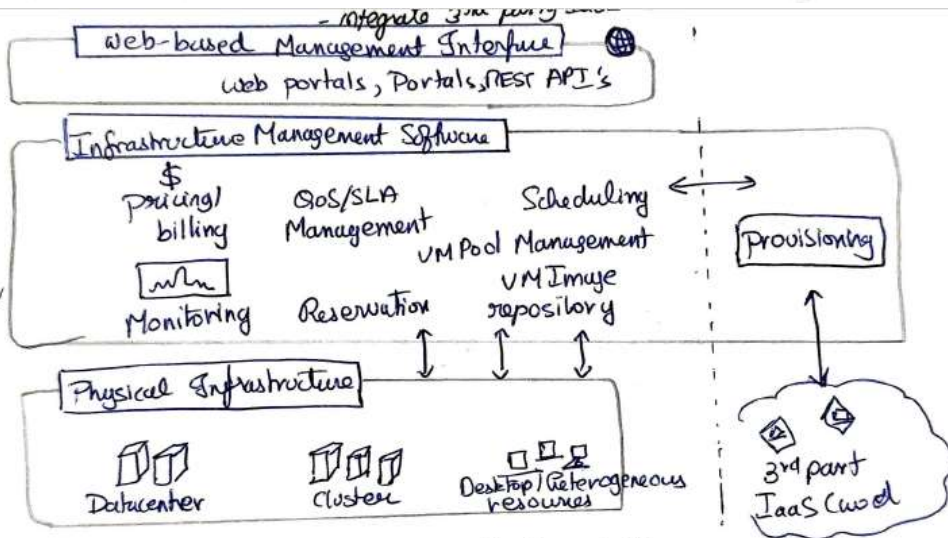 - integrate 3rd party
Web-based Management Interface
web portals, Portals, REST API's
Infrastructure Management Software
$
Pricing/
billing
QoS/SLA
Management
Scheduling
VM Pool Management
VM Image
repository
Provisioning
Monitoring
Reservation
Physical Infrastructure
Datacenter
Cluster
Desktop/Heterogeneous
resources
3rd part
IaaS